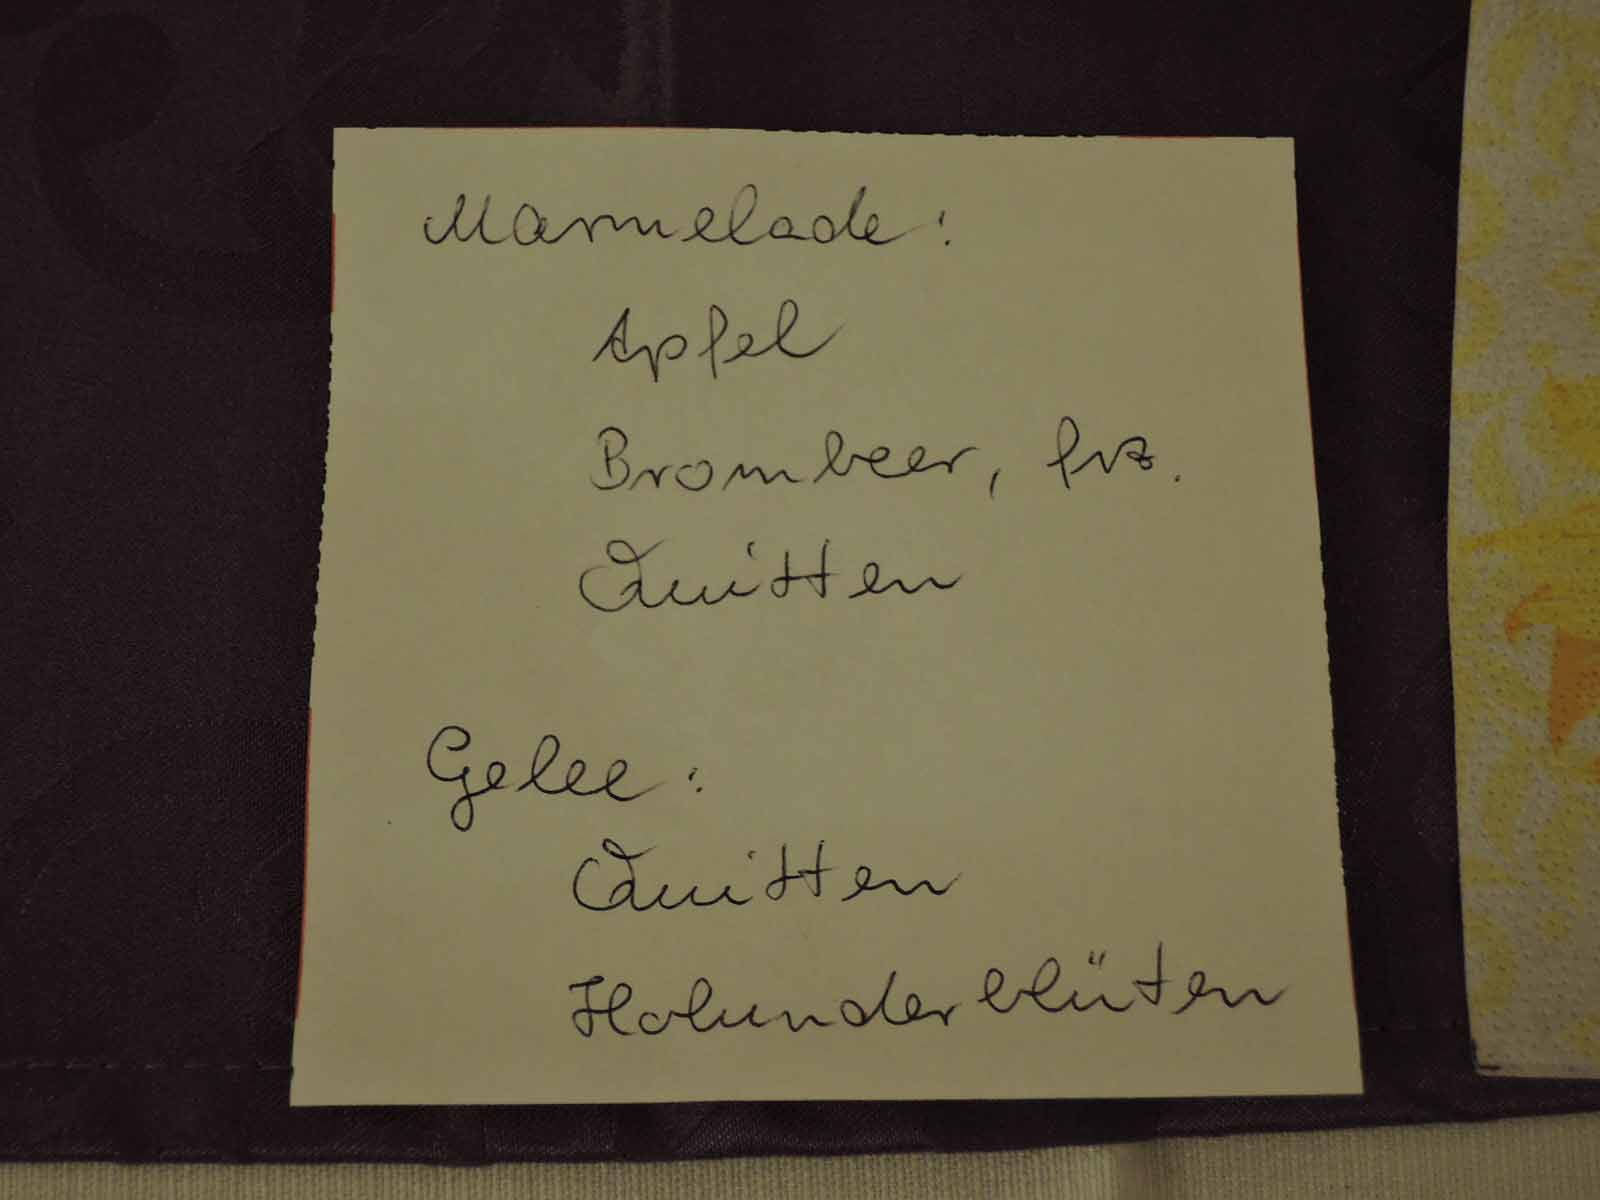 Marmelade:
Apfel
Brombeer, frz.
Quitten
Gelee:
Quitten
Holunderblüten